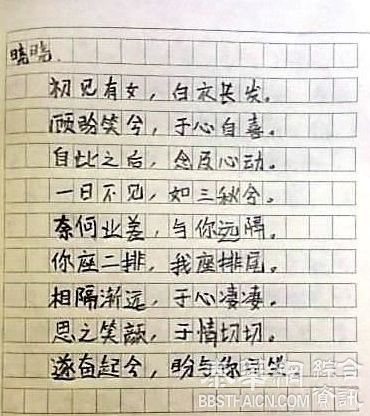 晓晓.
初见有女，白衣长发。
顾盼笑兮，于心自喜。
自此之后，念及心动。
一日不见，如三秋兮。
奈何业差，与你远隔。
你座二排，我座排尾。
相隔渐远，于心凄凄。
思之笑颜，于情切切。
遂奋起兮，盼与你笑。
綜合
BBSTHAICN.COM 資訊